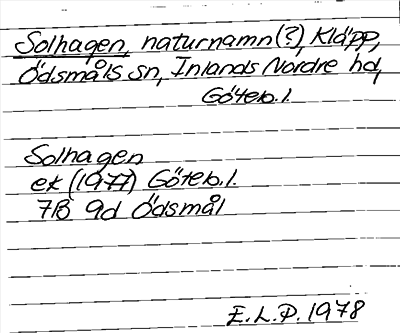 Solhagen, naturnamn(?), Kläpp,
Ödsmåls sn, Inlands Nordre hd,
Göteb. l.
Solhagen
ek (1977) Göteb. l.
7B 9d Ödsmål
E.L.P. 1978